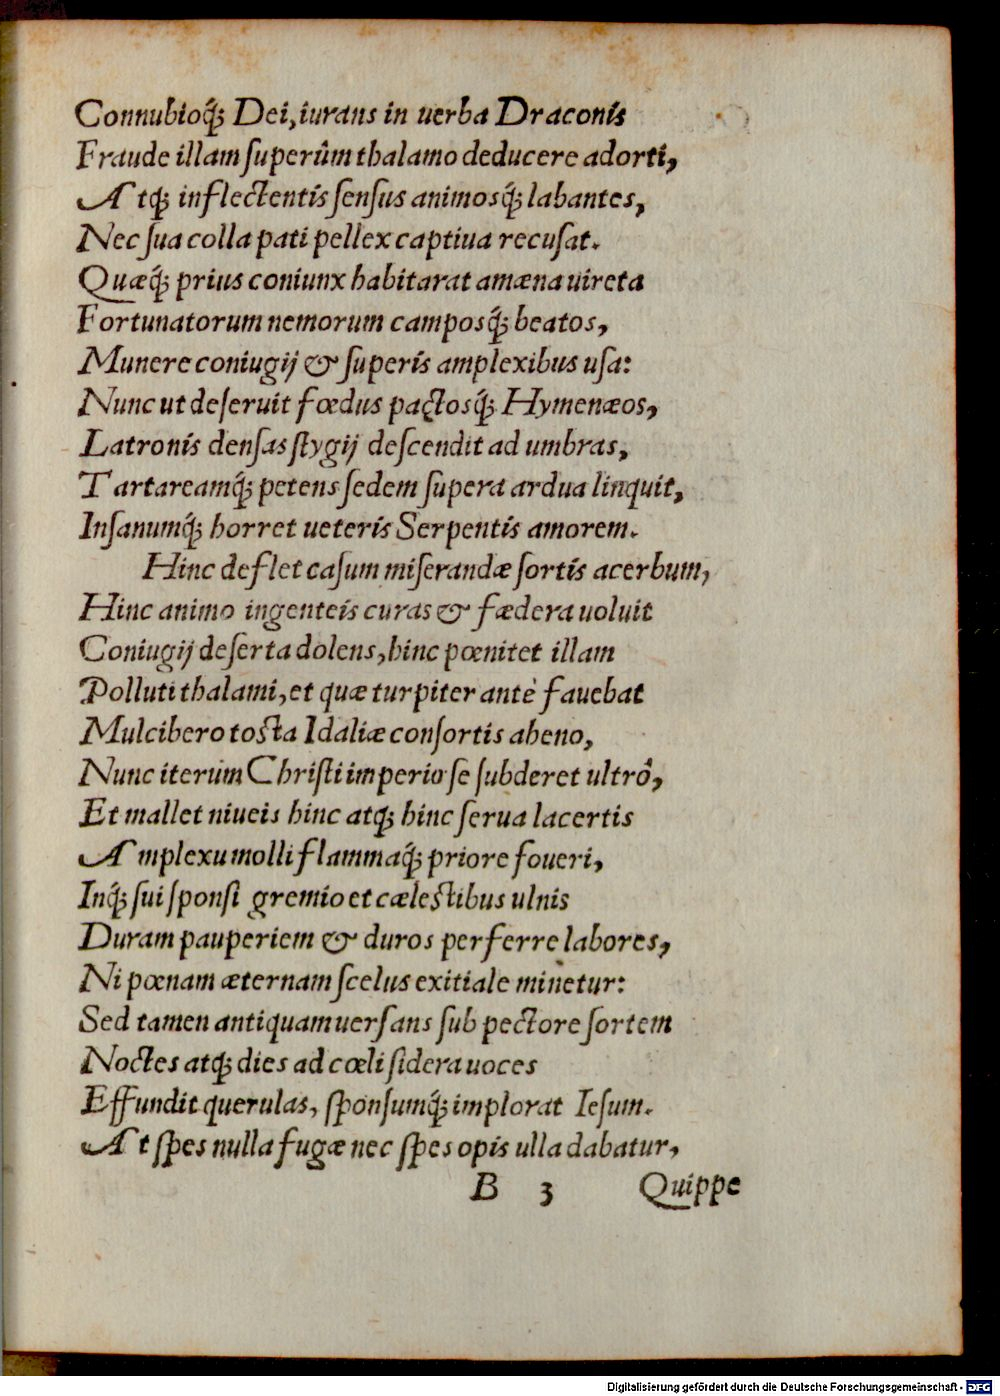 Connubioq́; Dei, iurans in uerba Draconis
Fraude illam ſuperûm thalamo deducere adorti,
Atq; inflectentis ſenſus animosq́; labantes,
Nec ſua colla pati pellex captiua recuſat.
Quæq́; prius coniunx habitarat amæna uireta
Fortunatorum nemorum camposq́; beatos,
Munere coniugij & ſuperis amplexibus uſa:
Nunc ut deſeruit fœdus pactosq́; Hymenæos,
Latronis denſas ſtygij deſcendit ad umbras,
Tartareamq́; petens ſedem ſupera ardua linquit,
Inſanumq́; horret ueteris Serpentis amorem.
Hinc deflet caſum miſerandæ ſortis acerbum,
Hinc animo ingenteis curas & fædera uoluit
Coniugij deſerta dolens, hinc pœnitet illam
Polluti thalami, et quæ turpiter antè fauebat
Mulcibero toſta Idaliæ conſortis aheno,
Nunc iterum Chriſti imperio ſe ſubderet ultrô,
Et mallet niueis hinc atq; hinc ſerua lacertis
Amplexu molli flammaq́; priore foueri,
Inq́; ſui ſponſi gremio et cæleſtibus ulnis
Duram pauperiem & duros perferre labores,
Ni pœnam æternam ſcelus exitiale minetur:
Sed tamen antiquam uerſans ſub pectore ſortem
Noctes atq; dies ad cœli ſidera uoces
Effundit querulas, ſponſumq́; implorat Ieſum.
At ſpes nulla fugæ nec ſpes opis ulla dabatur,
B 3 Quippe
Digitalisierung gefördert durch die Deutsche Forschungsgemeinschaft - DFG